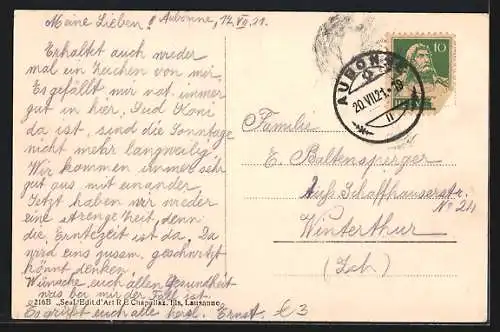 Meine Lieben! Aubonne, 17. VII. 21.
Erhaltet auch wieder
mal ein Zeichen von mir.
Es gefällt mir nat. immer
gut in hier. Seid Koni
da ist, sind die Sonntage
nicht mehr langweilig.
Wir kommen immer sehr
gut aus mit einander.
Jetzt haben wir wieder
eine strenge Zeit, denn
die Erntezeit ist da. Da
wird eins zusam. geschwitzt
könnt denken.
Wünsche euch allen Gesundheit
was bei mir der Fall ist.
Es grüsst euch alle herzl. Ernst.
10
AUBONNE
20.VII.21.
Familie
E. Baltensperger
Äuss. Schaffhauserstr.
No 24
Winterthur
(Zch.)
216B „Seal" Edit. d'Art R.E. Chapallaz fils, Lausanne.
€3